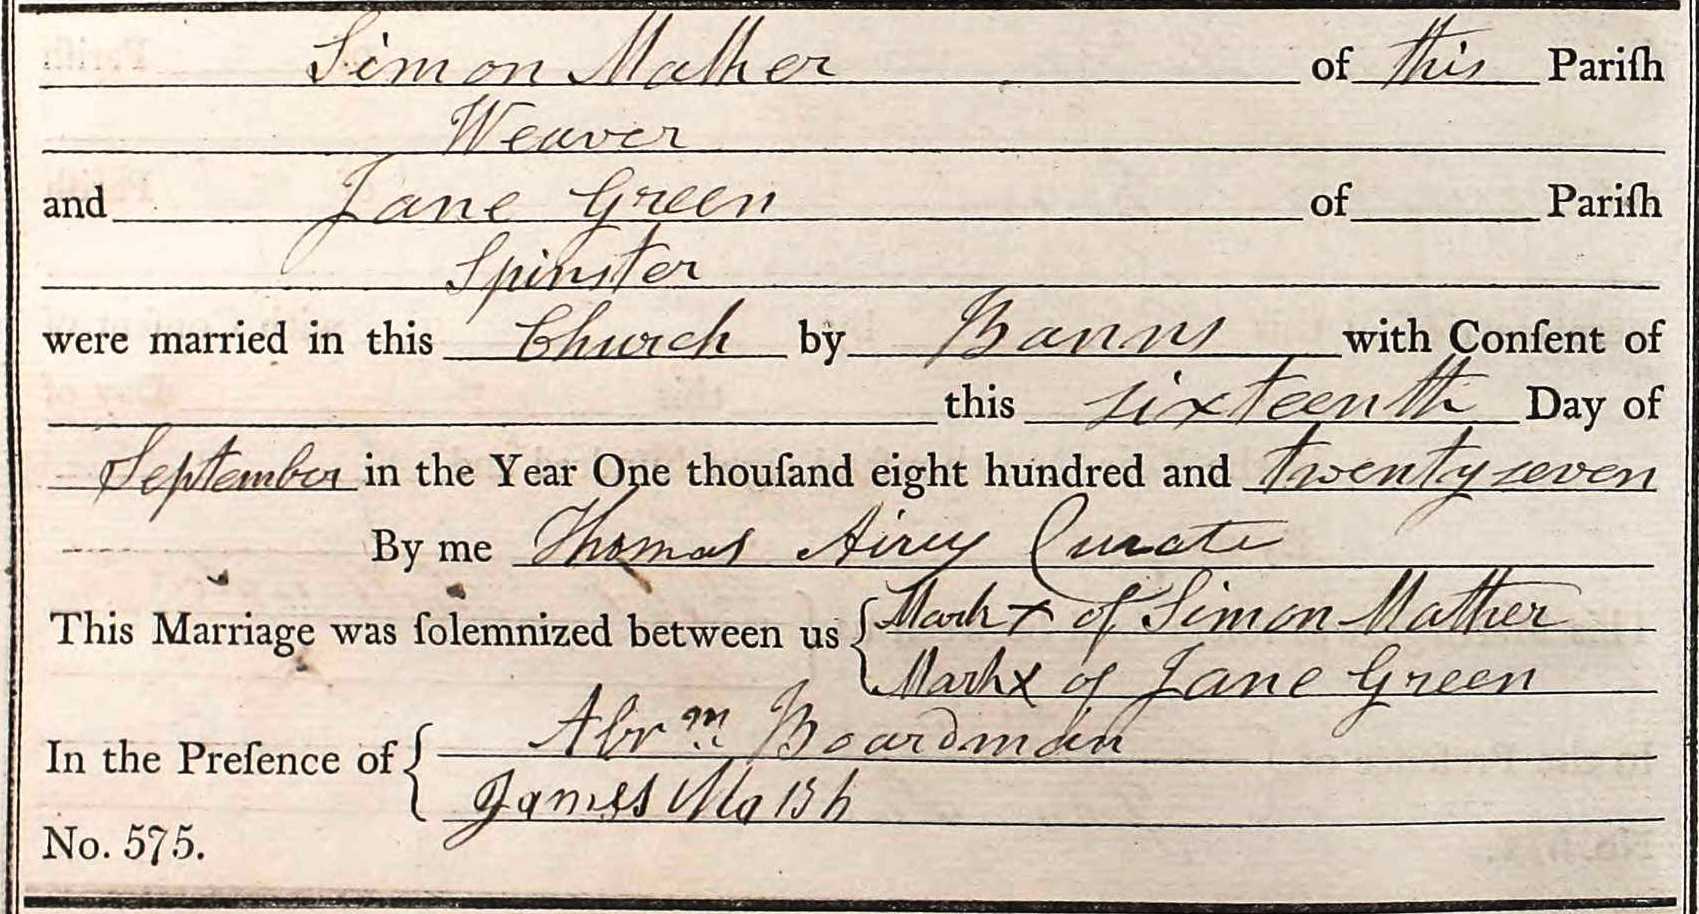 Simon Mather of this Pariſh
Weaver
and Jane Green of Pariſh
Spinster
were married in this Church by Banns with Conſent of
this sixteenth Day of
September in the Year One thouſand eight hundred and twenty seven
By me Thomas Airey Curate
This Marriage was ſolemnized between us { Mark x of Simon Mather
Mark x of Jane Green
In the Preſence of { Abrm Boardman
James Marsh
No. 575.